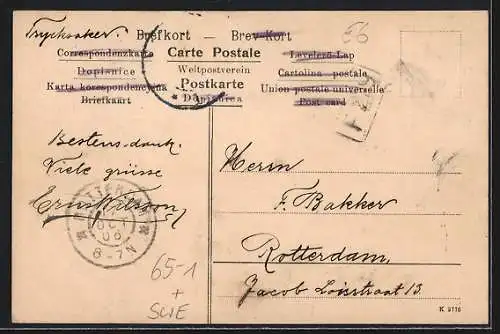 Trycksaker. Brefkort — Brev-Kort
Correspondenzkarte Carte Postale Levelező-Lap
Dopisnice Weltpostverein Cartolina postale
Karta korespondencyjna Postkarte Union postale universelle
Briefkaart Dopisnica Post card
56
Bestens dank.
Viele grüsse
Ernst Nilsson
ROTTERDAM
OCT
06
8-7N
65-1
+
SWE
Herrn
F. Bakker
Rotterdam,
Jacob Loisstraat 13.
K 9776